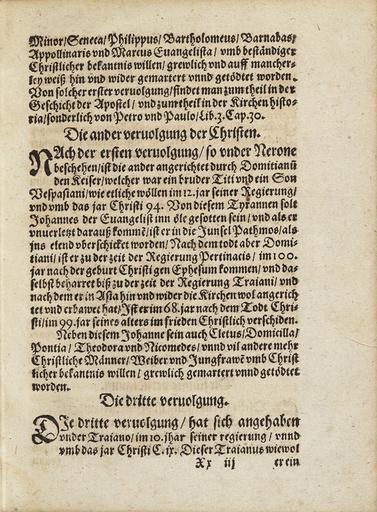 Minor/ Seneca/ Philippus/ Bartholomeus/ Barnabas/
Appollinaris vnd Marcus Euangelista/ vmb beständiger
Christlicher bekantnis willen/ grewlich vnd auff mancher-
ley weiß hin vnd wider gemartert vnnd getödtet worden.
Von solcher erster veruolgung/ findet man zum theil in der
Geschicht der Apostel/ vnd zum theil in der Kirchen histo-
ria/ sonderlich von Petro vnd Paulo/ Lib. 3. Cap. 30.
Die ander veruolgung der Christen.
NAch der ersten veruolgung/ so vnder Nerone
beschehen/ ist die ander angerichtet durch Domitianū
den Keiser/ welcher war ein bruder Titi vnd ein Son
Vespasiani/ wie etliche wöllen im 12. jar seiner Regierung/
vnd vmb das jar Christi 94. Von diesem Tyrannen solt
Johannes der Euangelist inn öle gesotten sein/ vnd als er
vnuerletzt darauß kommē/ ist er in die Junsel Pathmos/ als
jns elend vberschicket worden/ Nach dem todt aber Domi-
tiani/ ist er zu der zeit der Regierung Pertinacis/ im 100.
jar nach der geburt Christi gen Ephesum kommen/ vnd da-
selbst beharret biß zu der zeit der Regierung Traiani/ vnd
nach dem er in Asia hin vnd wider die Kirchen wol angerich
tet vnd erbawet hat/ Ist er im 68. jar nach dem Todt Chri-
sti/ im 99. jar seines alters im frieden Christlich verschiden.
Neben diesem Johanne sein auch Cletus/ Domicilla/
Pontia/ Theodora vnd Nicomedes/ vnnd vil andere mehr
Christliche Männer/ Weiber vnd Jungfrawē vmb Christ
licher bekantnis willen/ grewlich gemartert vnnd getödtet
worden.
Die dritte veruolgung.
DIe dritte veruolgung/ hat sich angehaben
vnder Traiano/ im 10. jhar seiner regierung/ vnnd
vmb das jar Christi C. ix. Dieser Traianus wiewol
Xx iij er ein